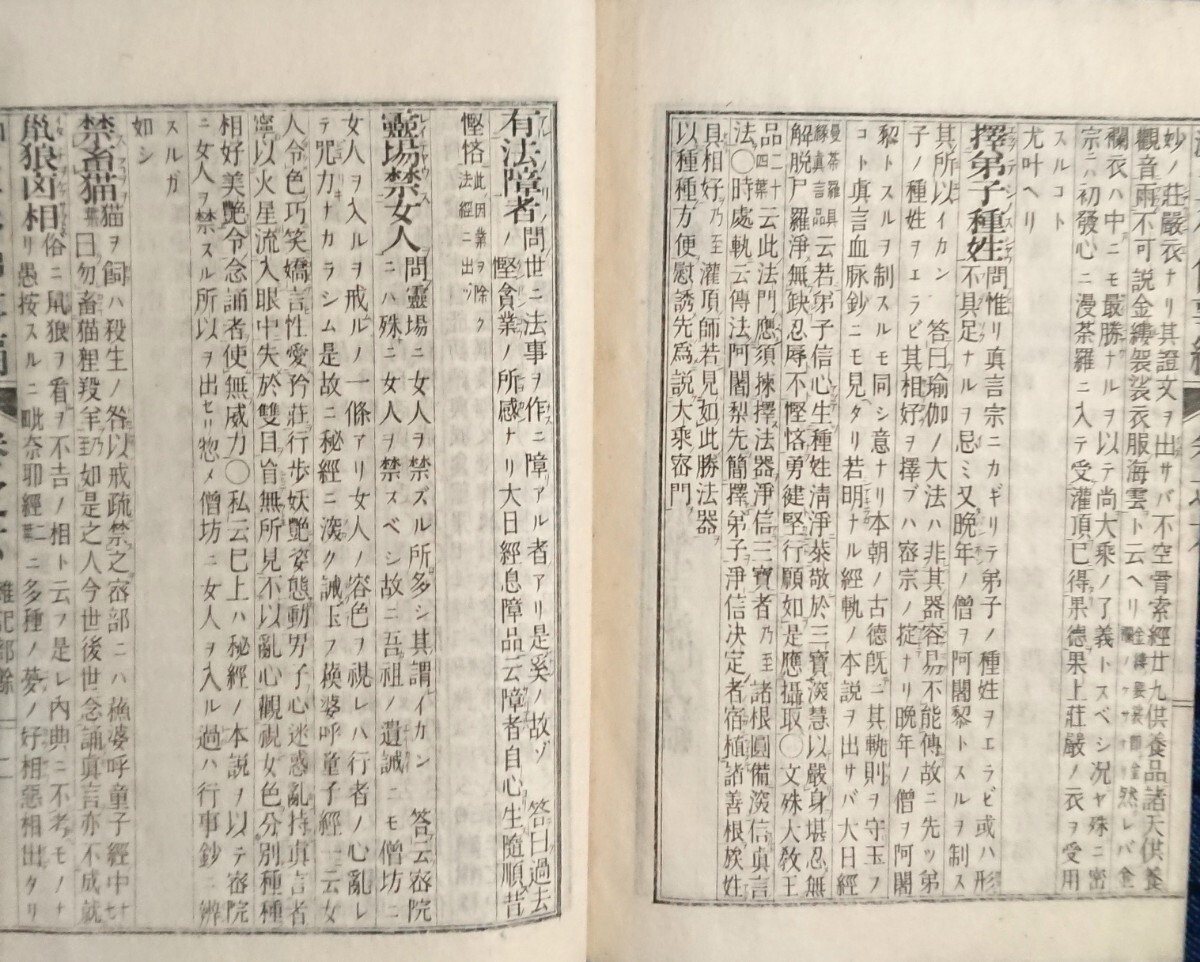 妙ノ莊嚴衣ナリ其證文ヲ出サバ不空罥索經廿九供養品諸天供養
觀音雨不可説金縷袈裟衣服海雲ト云ヘリ
襴衣ハ中ニモ最勝ナルヲ以テ尚大乘ノ了義トスベシ況ヤ殊ニ密
宗ニハ初發心ニ漫荼羅ニ入テ受灌頂已得果德果上莊嚴ノ衣ヲ受用
スルコト
尤叶ヘリ
擇弟子種姓問惟リ真言宗ニカギリテ弟子ノ種姓ヲエラビ或ハ形
不具足ナルヲ忌ミ又晩年ノ僧ヲ阿闍黎トスルヲ制ス
其所以イカン 答曰瑜伽ノ大法ハ非其器容易不能傳故ニ先ッ弟
子ノ種姓ヲエラビ其相好ヲ擇ブハ密宗ノ掟ナリ晩年ノ僧ヲ阿闍
黎トスルヲ制スルモ同シ意ナリ本朝ノ古德旣ニ其軌則ヲ守玉ノ
コト真言血脉鈔ニモ見タリ若明ナル經軌ノ本説ヲ出サバ大日經
曼荼羅具
緣真言品云若弟子信心生種姓清淨恭敬於三寶深慧以嚴身堪忍無
解脱尸羅淨無缺忍辱不慳悋勇健堅行願如是應攝取〇文殊大敎王
品二十四葉云此法門應須揀擇法器淨信三寶者乃至諸根圓備深信真言
法〇時處軌云傳法阿闍梨先簡擇弟子淨信决定者宿植諸善根族姓
具相好乃至灌頂師若見如此勝法器
以種種方便慰誘先爲説大乘密門
有法障者問世ニ法事ヲ作ニ障アル者アリ是奚ノ故ゾ 答曰過去
ノ慳貪業ノ所感ナリ大日經息障品云障者自心生隨順昔
慳悋此因業ヲ除ク法經ニ出ヅ
靈場禁女人問靈場ニ女人ヲ禁ズル所多シ其謂イカン 答云密院
ニハ殊ニ女人ヲ禁スベシ故ニ吾祖ノ遺誡ニモ僧坊ニ
女人ヲ入ルヲ戒ルノ一條アリ女人ノ容色ヲ視レハ行者ノ心亂レ
テ咒力ナカラシム是故ニ秘經ニ深ク誡玉フ𢴃婆呼童子經一云女
人令色巧笑嬌言性愛矜莊行歩妖艷姿態動男子心迷惑亂持真言者
寧以火星流入眼中失於雙目盲無所見不以亂心觀視女色分別種種
相好美艷令念誦者使無威力〇私云已上ハ秘經ノ本説ヲ以テ密院
ニ女人ヲ禁スル所以ヲ出セリ惣メ僧坊ニ女人ヲ入ル過ハ行事鈔ニ辨
スルガ
如シ
禁畜猫猫ヲ飼ハ殺生ノ咎以戒疏禁之密部ニハ𢴃婆呼童子經中
曰勿畜猫狸羖羊乃如是之人今世後世念誦真言亦不成就
鼠狼凶相俗ニ鼠狼ヲ看ヲ不吉ノ相ト云フ是レ内典ニ不考モノナ
リ愚按スルニ毗奈耶經二ニ多種ノ夢ノ好相惡相出タリ
雜記部餘